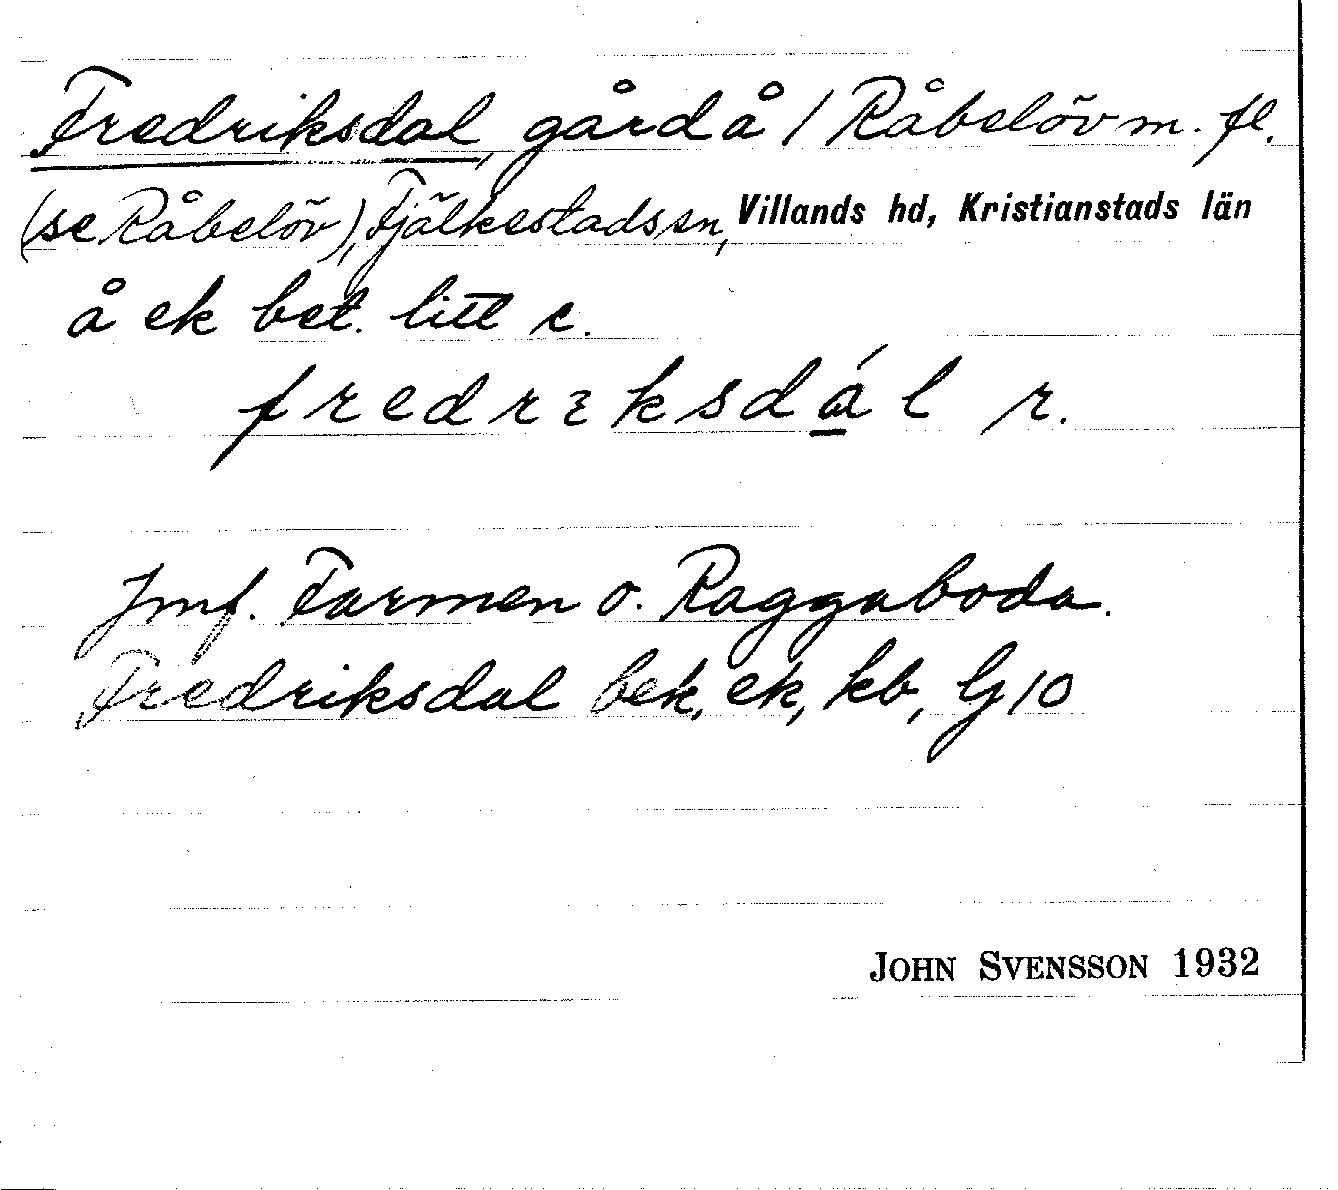 Fredriksdal, gård å 1 Råbelöv m. fl.
(se Råbelöv), Fjälkestads sn, Villands hd, Kristianstads län
å ek bet. litt c.
fredrɪksdál r.
Jmf. Farmen o. Raggaboda.
Fredriksdal bek, ek, kb, G 10
JOHN SVENSSON 1932